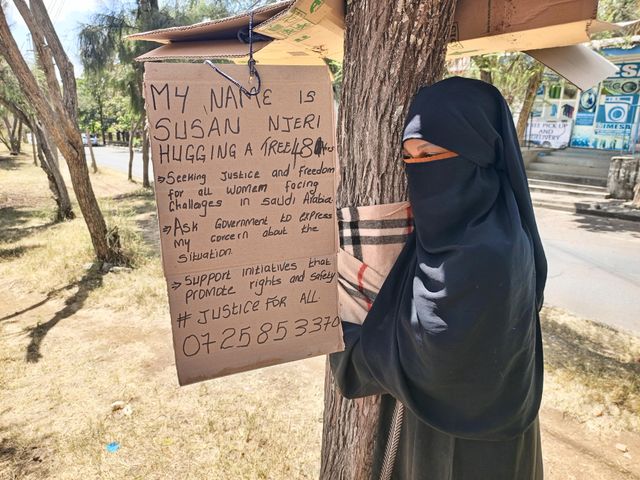 MY NAME IS
SUSAN NJERI
HUGGING A TREE 48Hrs
→ SEEKING JUSTICE and Freedom
for all women facing
challeges in saudi Arabia
→ ASK Government to express
my concern about the
situation.
→ SUPPORT initiatives that
promote rights and safety
# JUSTICE FOR ALL.
0725853370
EE PICK UP
AND
DELIVERY